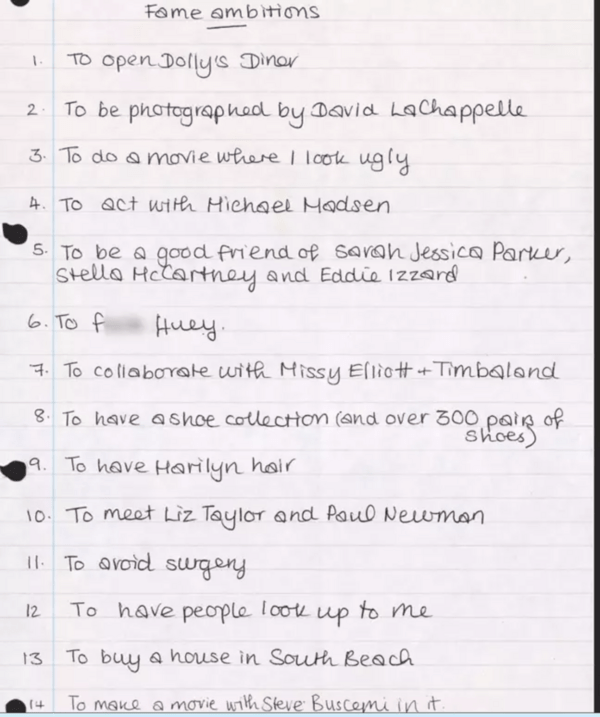 Fame ambitions
1. To open Dolly's Diner
2. To be photographed by David LaChappelle
3. To do a movie where I look ugly
4. To act with Michael Madsen
5. To be a good friend of Sarah Jessica Parker,
Stella McCartney and Eddie Izzard
6. To f Huey.
7. To collaborate with Missy Elliott + Timbaland
8. To have a shoe collection (and over 300 pairs of
shoes)
9. To have Marilyn hair
10. To meet Liz Taylor and Paul Newman
11. To avoid surgery
12 To have people look up to me
13 To buy a house in South Beach
14 To make a movie with Steve Buscemi in it.